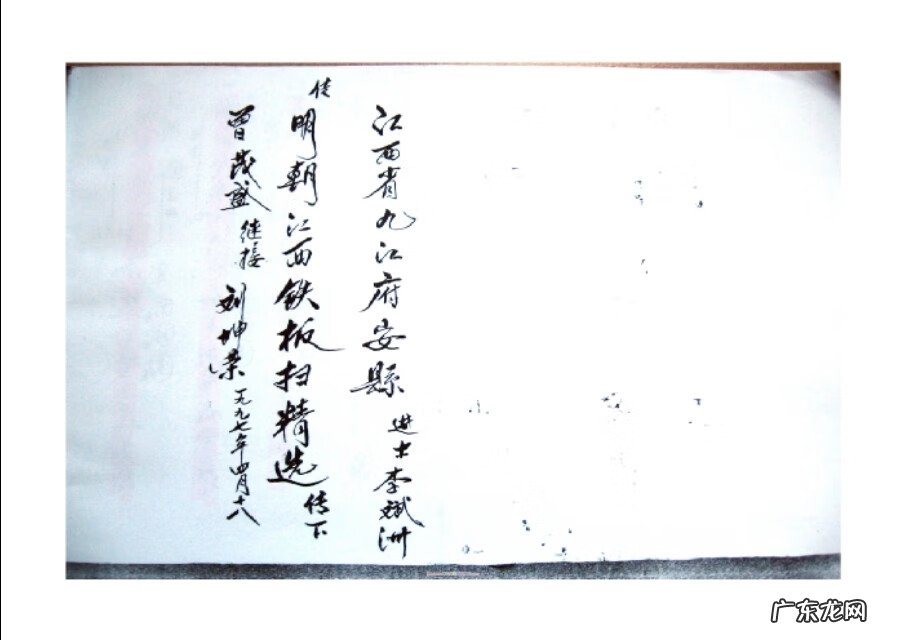 江西省九江府安縣 进士李斌洲
传明朝江西铁板扫精选传下
曾茂盛继接刘坤荣一九九七年四月十八
广东龙网